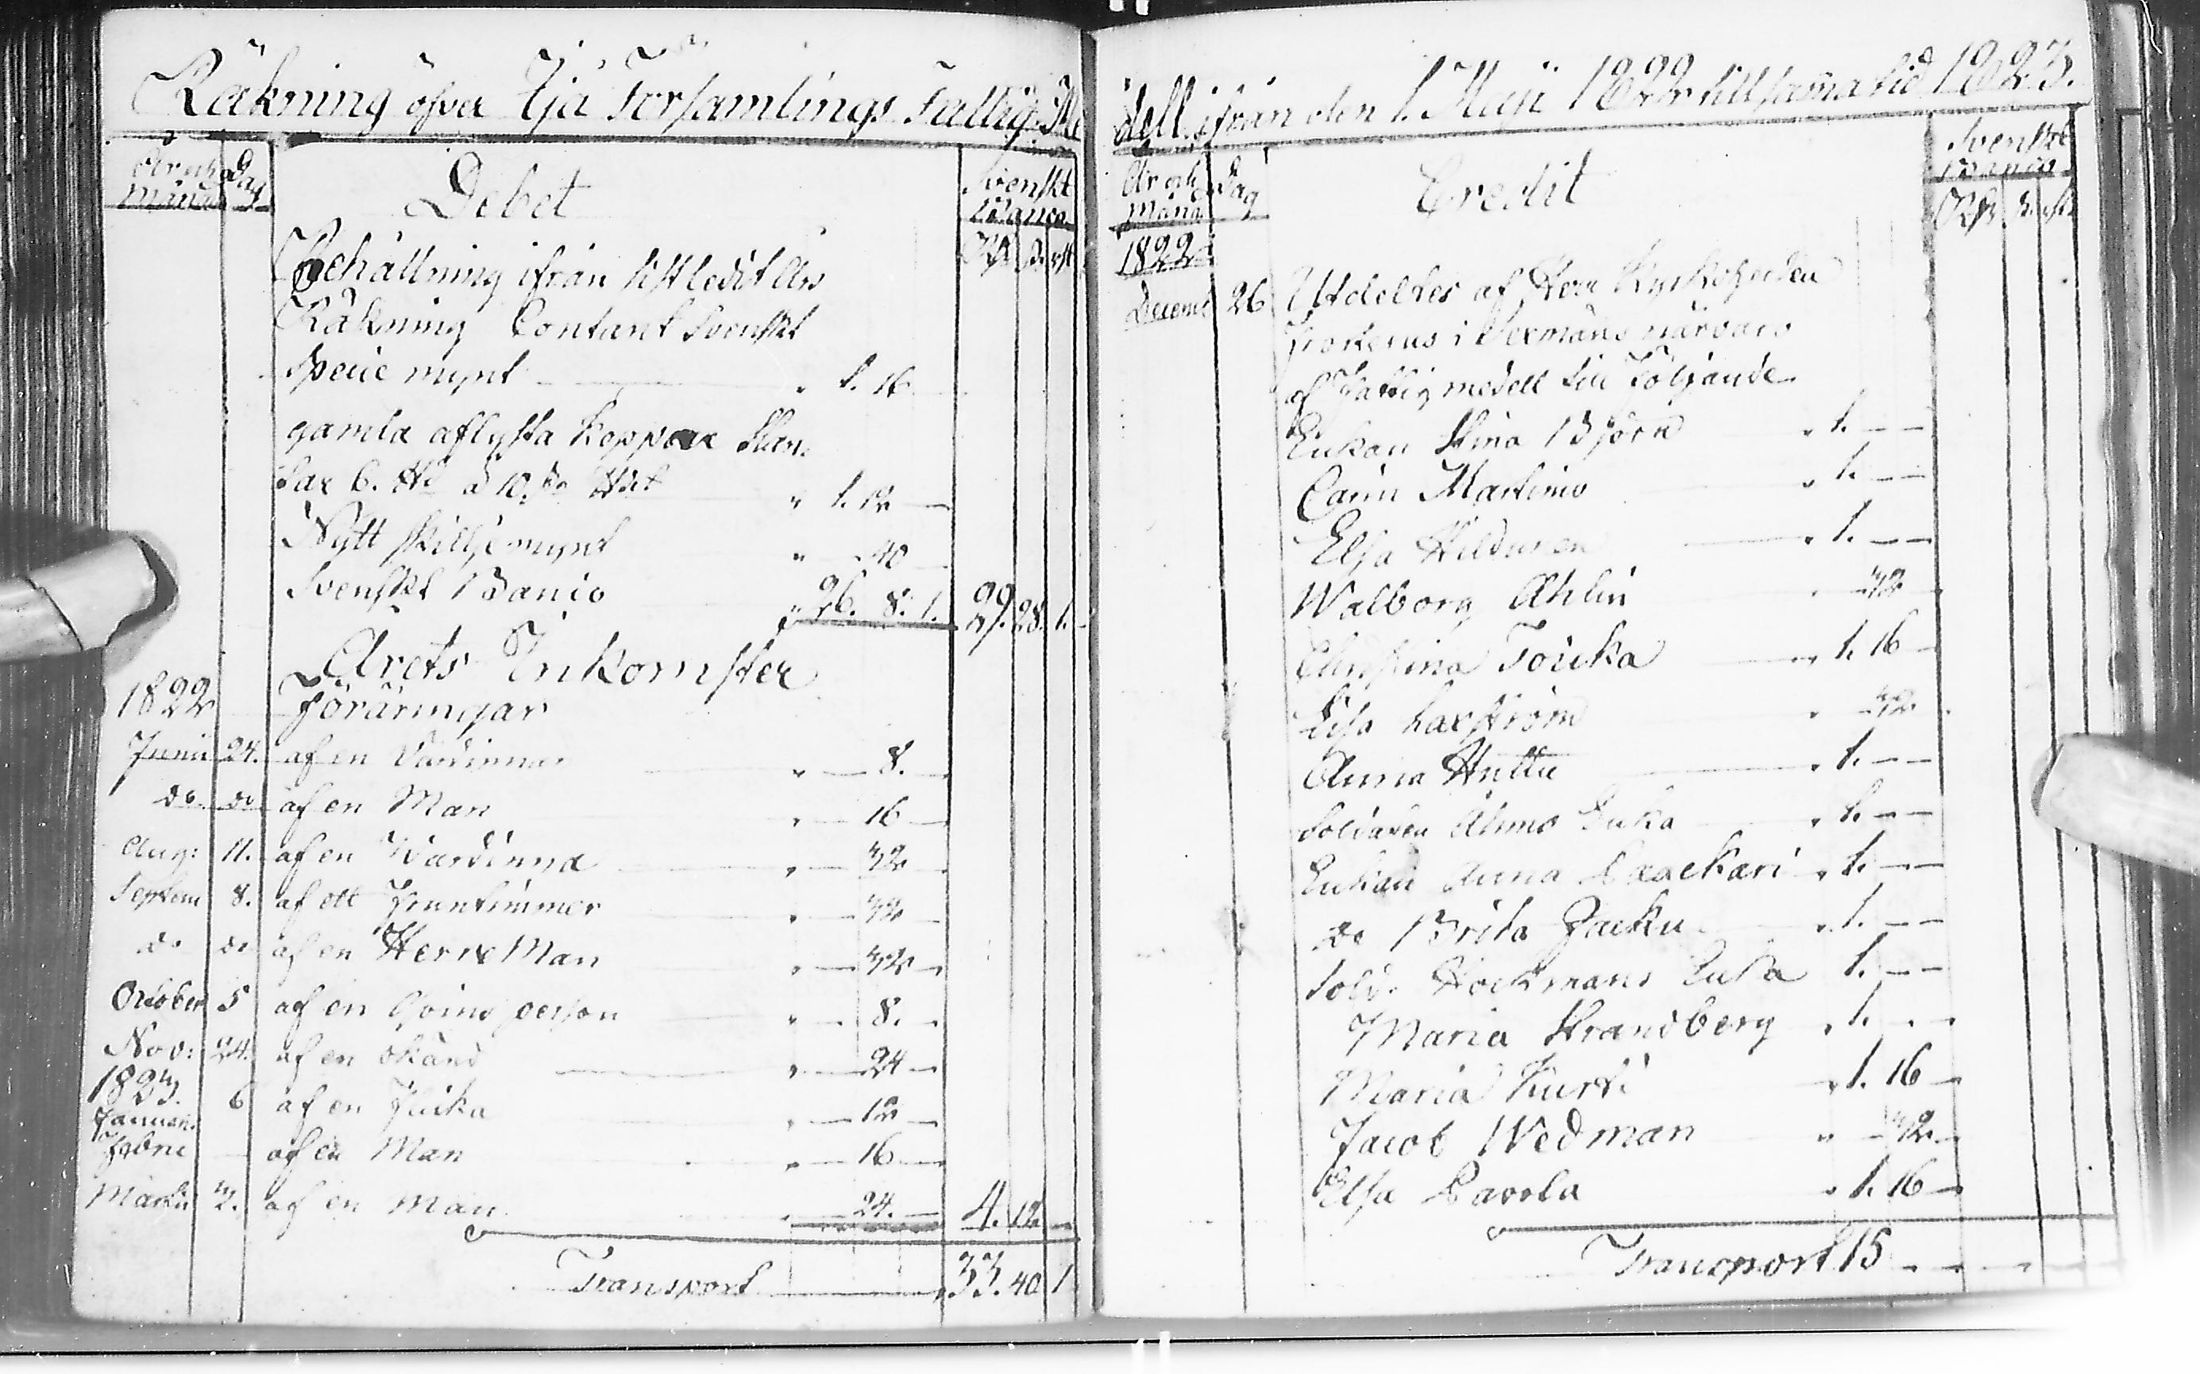 Räkning öfver Ijå Församlings Fattig Me
År och Månad Dag
Debet
Svenskt Banco
Rdr s. rst
Behållning ifrån sistledit Års
Räkning Contant Svenskt
Specie mynt " 1. 16
gamla aflysta Koppar Slan.
tar 6. à 10. " 1. 12 —
Nytt skilljemynt " " 40 —
Svenskt Banco " 26. 8. 1. 29. 28. 1.
Årets Inkomster
1822 Föräringar
Junii 24. af en Värdinna " — 8. —
do do af en Man " — 16 —
Aug: 11. af en Wärdinna " — 32 —
Septem 8. af ett Fruntimmer " — 32 —
do do af en Herre Man " — 32 —
October 5 af en person " — 8. —
Nov: 24. af en okänd " — 24 —
1823.
Januari 6 af en Flicka " — 12 —
Febru — af en Man " — 16 —
Martii 2. af en Man " — 24. — 4. 12 —
Transport 33. 40 1
dell ifrån den 1. Maji 1822 till samma tid 1823.
År och Månad Dag
Credit
Svenskt Banco
Rdr s. rst
1822
Decemb 26 Utdeltes af Herr Kyrkoherden
Frosterus i Sexmäns närvaro
af Fattig medell till Följande
Enkan Stina Björn " 1. — —
Carin Martinus " 1. — —
Elsa " 1. — —
Walborg Ahlin " — 32 —
Christina Toicka " 1. 16 —
Lisa Laxström " — 32 —
Anna Huttu " 1. — —
Soldaten Ahmos Enka " 1. — —
Enkan Anna " 1. — —
do Brita Jacku " 1. — —
Sold. Höckmans Enka 1. — —
Maria Strandberg " 1. — —
Maria Kurti " 1. 16 —
Jacob Wedman " — 32 —
Elsa Lavola " 1. 16 —
Transport 15 — — —